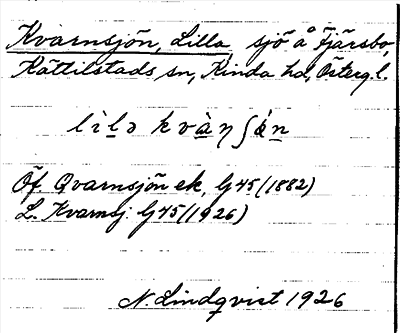 Kvarnsjön, Lilla, sjö å Fjärsbo,
Kättilstads sn, Kinda hd, Östergl.
lìlə kvàŋʃǿn
Öf. Qvarnsjön ek, G45 (1882)
L. Kvarnsj. G45 (1926)
N. Lindqvist 1926